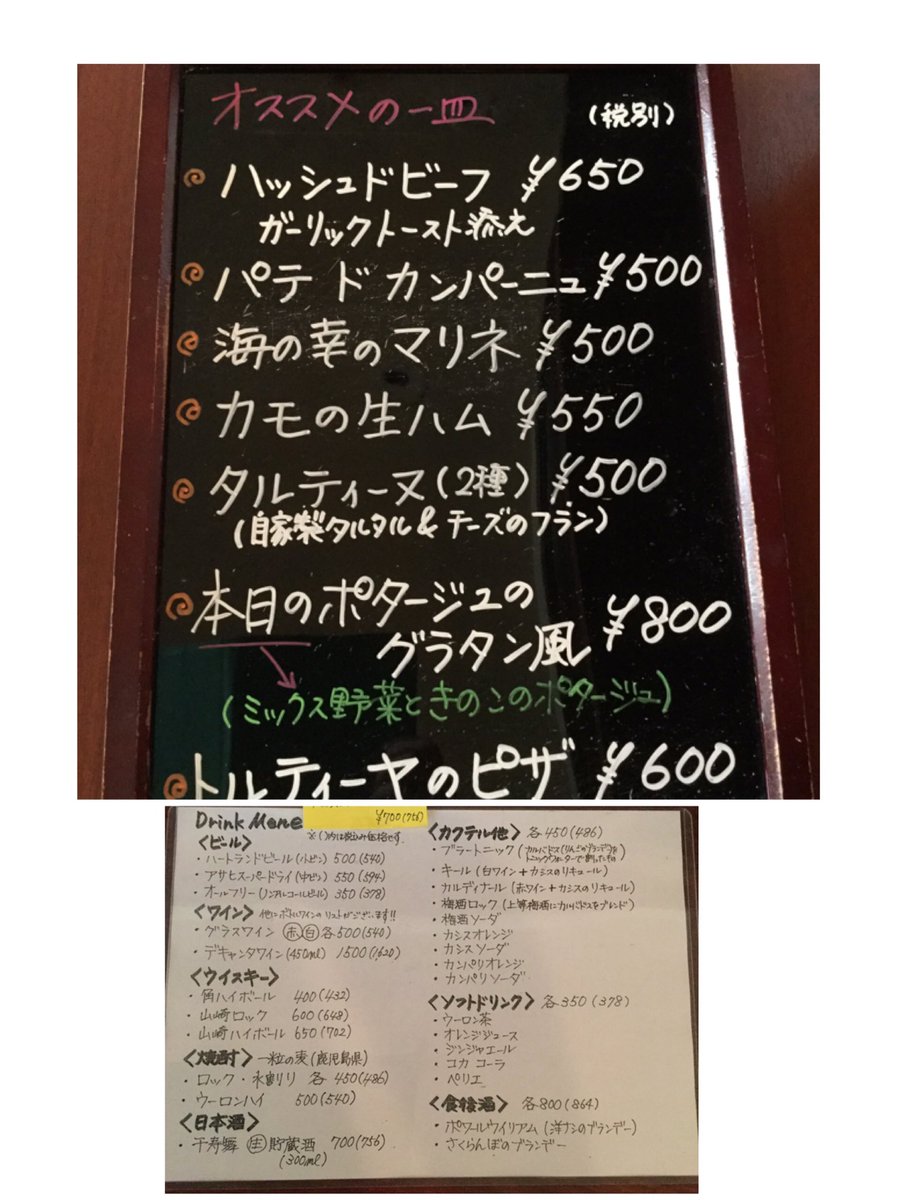 オススメの一皿 (税別)
ハッシュドビーフ ¥650
ガーリックトースト添え
パテ ド カンパーニュ ¥500
海の幸のマリネ ¥500
カモの生ハム ¥550
タルティーヌ(2種) ¥500
(自家製タルタル & チーズのフラン)
本日のポタージュの
グラタン風 ¥800
(ミックス野菜ときのこのポタージュ)
トルティーヤのピザ ¥600
Drink Mene
¥700(756)
※()内は税込み価格です。
〈ビール〉
・ハートランドビール(小ビン) 500(540)
・アサヒスーパードライ(中ビン) 550(594)
・オールフリー(ノンアルコールビール) 350(378)
〈ワイン〉 他にボトルワインのリストがございます!!
・グラスワイン 赤 白 各500(540)
・デキャンタワイン(450ml) 1500(1620)
〈ウイスキー〉
・角ハイボール 400(432)
・山崎ロック 600(648)
・山崎ハイボール 650(702)
〈焼酎〉 一粒の麦(鹿児島県)
・ロック・水割り 各 450(486)
・ウーロンハイ 500(540)
〈日本酒〉
・千寿舞 生 貯蔵酒 700(756)
(300ml)
〈カクテル他〉 各450(486)
・プラートニック(カルバドス(りんごのブランデー)を
トニックウォーターで割ったもの
・キール(白ワイン+カシスのリキュール)
・カルディナール(赤ワイン+カシスのリキュール)
・梅酒ロック(上等梅酒にカルバドスをブレンド)
・梅酒ソーダ
・カシスオレンジ
・カシスソーダ
・カンパリオレンジ
・カンパリソーダ
〈ソフトドリンク〉 各350(378)
・ウーロン茶
・オレンジジュース
・ジンジャエール
・コカ コーラ
・ペリエ
〈食後酒〉 各800(864)
・ポワールウイリアム(洋ナシのブランデー)
・さくらんぼのブランデー